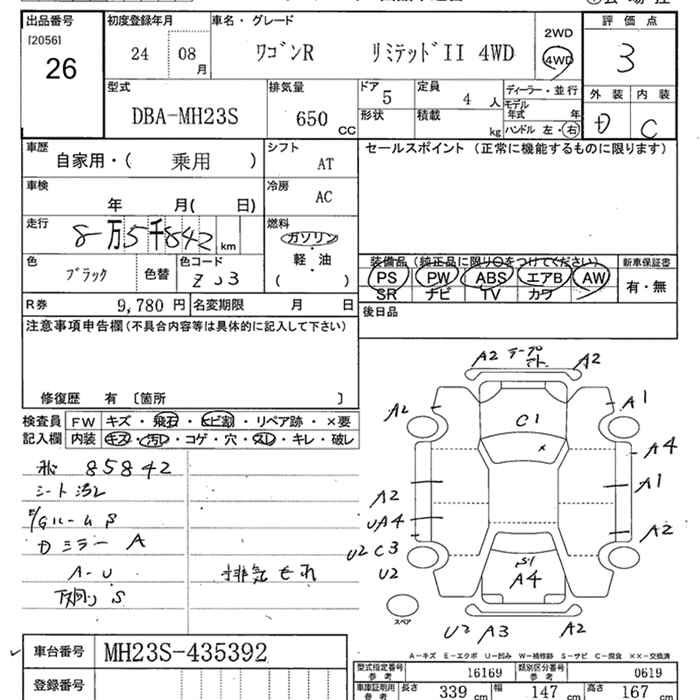 出品番号 初度登録年月 車名・グレード 評価点
[2056]
26
24 08 月 ワゴンR リミテッドII 4WD
2WD
4WD
3
外装 内装
D C
型式 排気量 ドア 定員 ディーラー・並行
DBA-MH23S 650 CC 5 4 人
モデル年式 年
形状 積載 kg ハンドル 左・右
車歴 シフト セールスポイント (正常に機能するものに限ります)
自家用・( 乗用 ) AT
車検 冷房
年 月( 日) AC
走行 燃料
8万5千842 km ガソリン
軽・油
( )
色 色コード 装備品 (純正品に限り○をつけてください) 新車保証書
ブラック 色替 ZJ3
PS PW ABS エアB AW 有・無
SR ナビ TV カワ
R券 9,780 円 名変期限 月 日 後日品
注意事項申告欄(不具合内容等は具体的に記入して下さい)
修復歴 有 〔箇所 〕
検査員 FW キズ・飛石・ヒビ割・リペア跡・×要
記入欄 内装 キズ・汚レ・コゲ・穴・スレ・キレ・破レ
85842
シート汚レ
ルーム S
ミラー A
A-U
下廻り S
排気もれ
A2 テープ A2
A2 A1
C1
A4
A2 A1
UA4 A2
U2 C3
U2
S1
A4
スペア
U2 A3 A2
車台番号 MH23S-435392
登録番号
A-キズ E-エクボ U-凹み W-補修跡 S-サビ C-腐食 ××-交換済
型式指定番号 参考 16169 類別区分番号 参考 0619
車庫証明用 参考 長さ 339 cm 幅 147 cm 高さ 167 cm